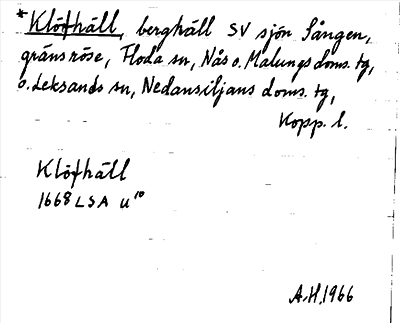 *Klöfhäll, berghäll SV sjön Sången,
gränsröse, Floda sn, Nås o. Malungs doms. tg,
o. Leksands sn, Nedansiljans doms. tg,
Kopp. l.
Klöfhäll
1668 LSA U¹⁰
A.H. 1966